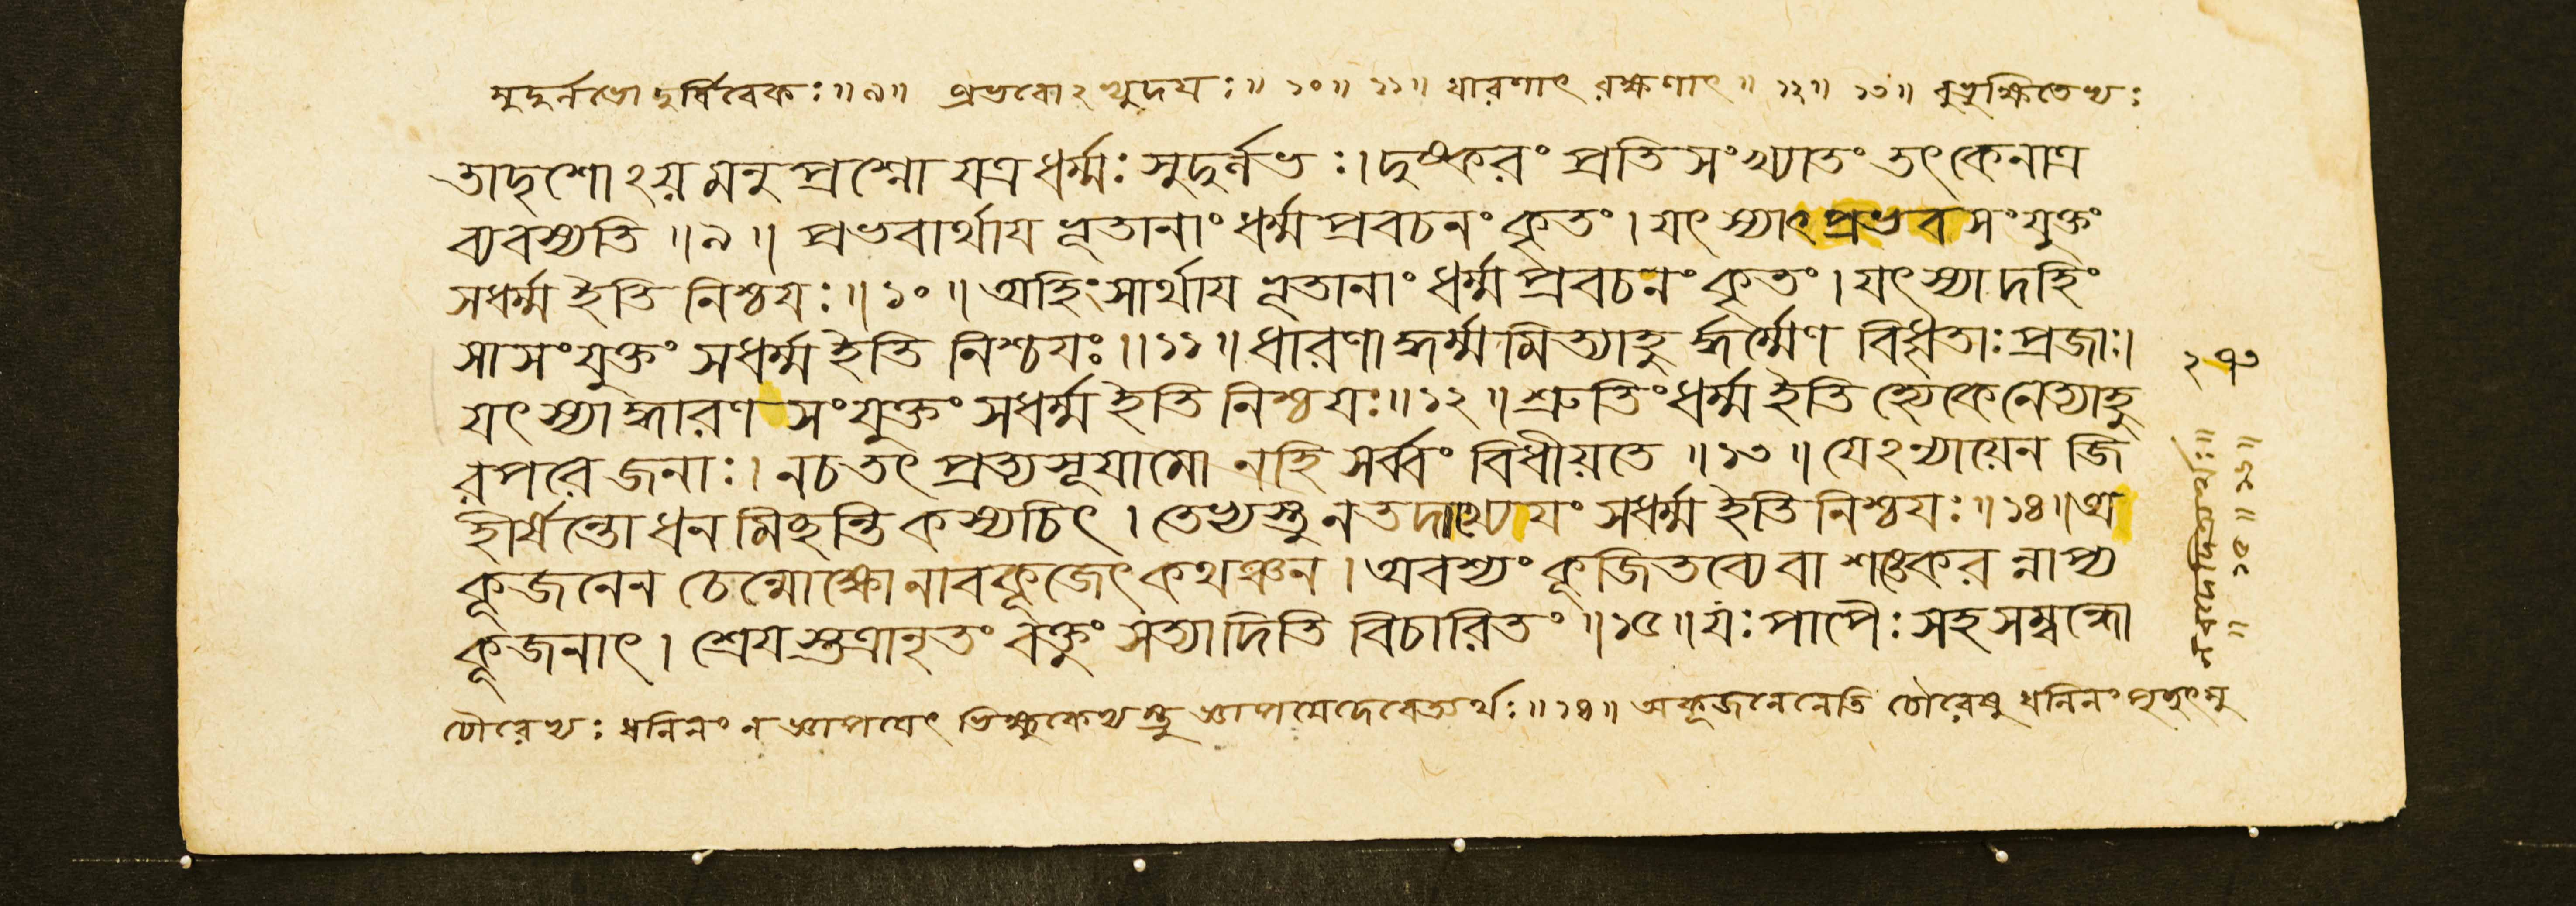 সুদুর্লভো দুর্বিবেকঃ॥৯॥ প্রভবোঽভ্যুদয়ঃ॥ ১০॥ ১১॥ ধারণাৎ রক্ষণাৎ॥ ১২॥ ১৩॥ বুভুক্ষিতেভ্যঃ
তাদৃশোঽয়মনুপ্রশ্নো যত্র ধর্ম্মঃ সুদুর্লভঃ। দুষ্করং প্রতিসংখ্যাতং তৎ কেনাত্র
ব্যবস্যতি ॥৯॥ প্রভবার্থায ভূতানাং ধর্ম্মপ্রবচনং কৃতং। যৎ স্যাৎ প্রভবসংযুক্তং
সধর্ম্ম ইতি নিশ্চযঃ॥১০॥ অহিংসার্থায ভূতানাং ধর্ম্মপ্রবচনং কৃতং। যৎ স্যাদহিং
সাসংযুক্তং সধর্ম্ম ইতি নিশ্চযঃ॥১১॥ ধারণাদ্ধর্ম্মমিত্যাহু র্দ্ধর্ম্মেণ বিধৃতাঃ প্রজাঃ।
যৎ স্যাদ্ধারণসংযুক্তং সধর্ম্ম ইতি নিশ্চযঃ॥১২॥ শ্রুতিং ধর্ম্ম ইতি হ্যেকে নেত্যাহু
রপরে জনাঃ। নচ তৎ প্রত্যসূযামো নহি সর্ব্বং বিধীয়তে ॥১৩॥ যেঽন্যায়েন জি
হীর্ষন্তো ধনমিচ্ছন্তি কস্যচিৎ। তেভ্যস্তু ন তদাখ্যেযং সধর্ম্ম ইতি নিশ্চযঃ॥১৪॥ অ
কূজনেন চেন্মোক্ষো নাবকূজেৎ কথঞ্চন। অবশ্যং কূজিতব্যে বা শঙ্কেরন্নাপ্য
কূজনাৎ। শ্রেযস্তত্রানৃতং বক্তুং সত্যাদিতি বিচারিতং ॥১৫॥ যঃ পাপৈঃ সহ সম্বন্ধো
চৌরেভ্যঃ ধনিনং ন জ্ঞাপযেৎ ভিক্ষুকেভ্যস্তু জ্ঞাপয়েদেবেত্যর্থঃ॥১৪॥ অকূজনেনেতি চৌরেষু ধনিনং
২৭৩
॥ ১৫॥ ১৬॥